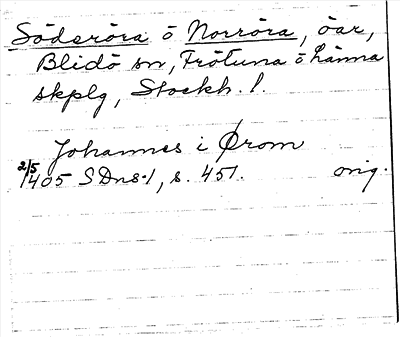 Söderöra o Norröra, öar,
Blidö sn, Frötuna o Länna
skplg, Stockh. l.
Johannes i Ørom
2/5 1405 SDns. 1, s. 451. orig.